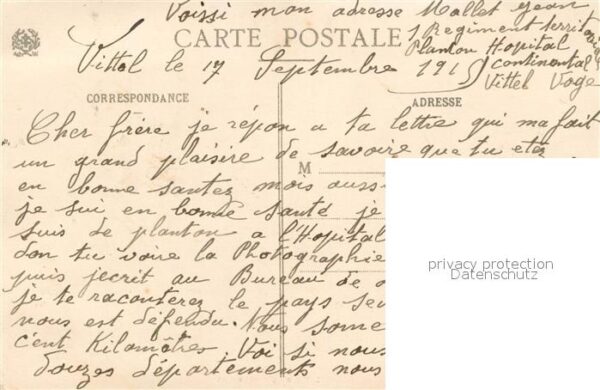 Voissi mon adresse Mallet Jean
CARTE POSTALE
1 Regiment territorial
Planton Hopital
Continental
Vittel Voge
Vittel le 17 Septembre 1915
CORRESPONDANCE
ADRESSE
Cher frère je répon a ta lettre qui ma fait
un grand plaisire de savoire que tu etez
M
en bonne santez mois auss
je sui en bonne santé je
suis de planton a l'Hopital
don tu voire la Photographie
puis jecrit au Bureau de
je te raconterez le pays
nous est défendu. Nous some
c'ent Kilomètres Voi si nous
douzes départements nous
privacy protection
Datenschutz